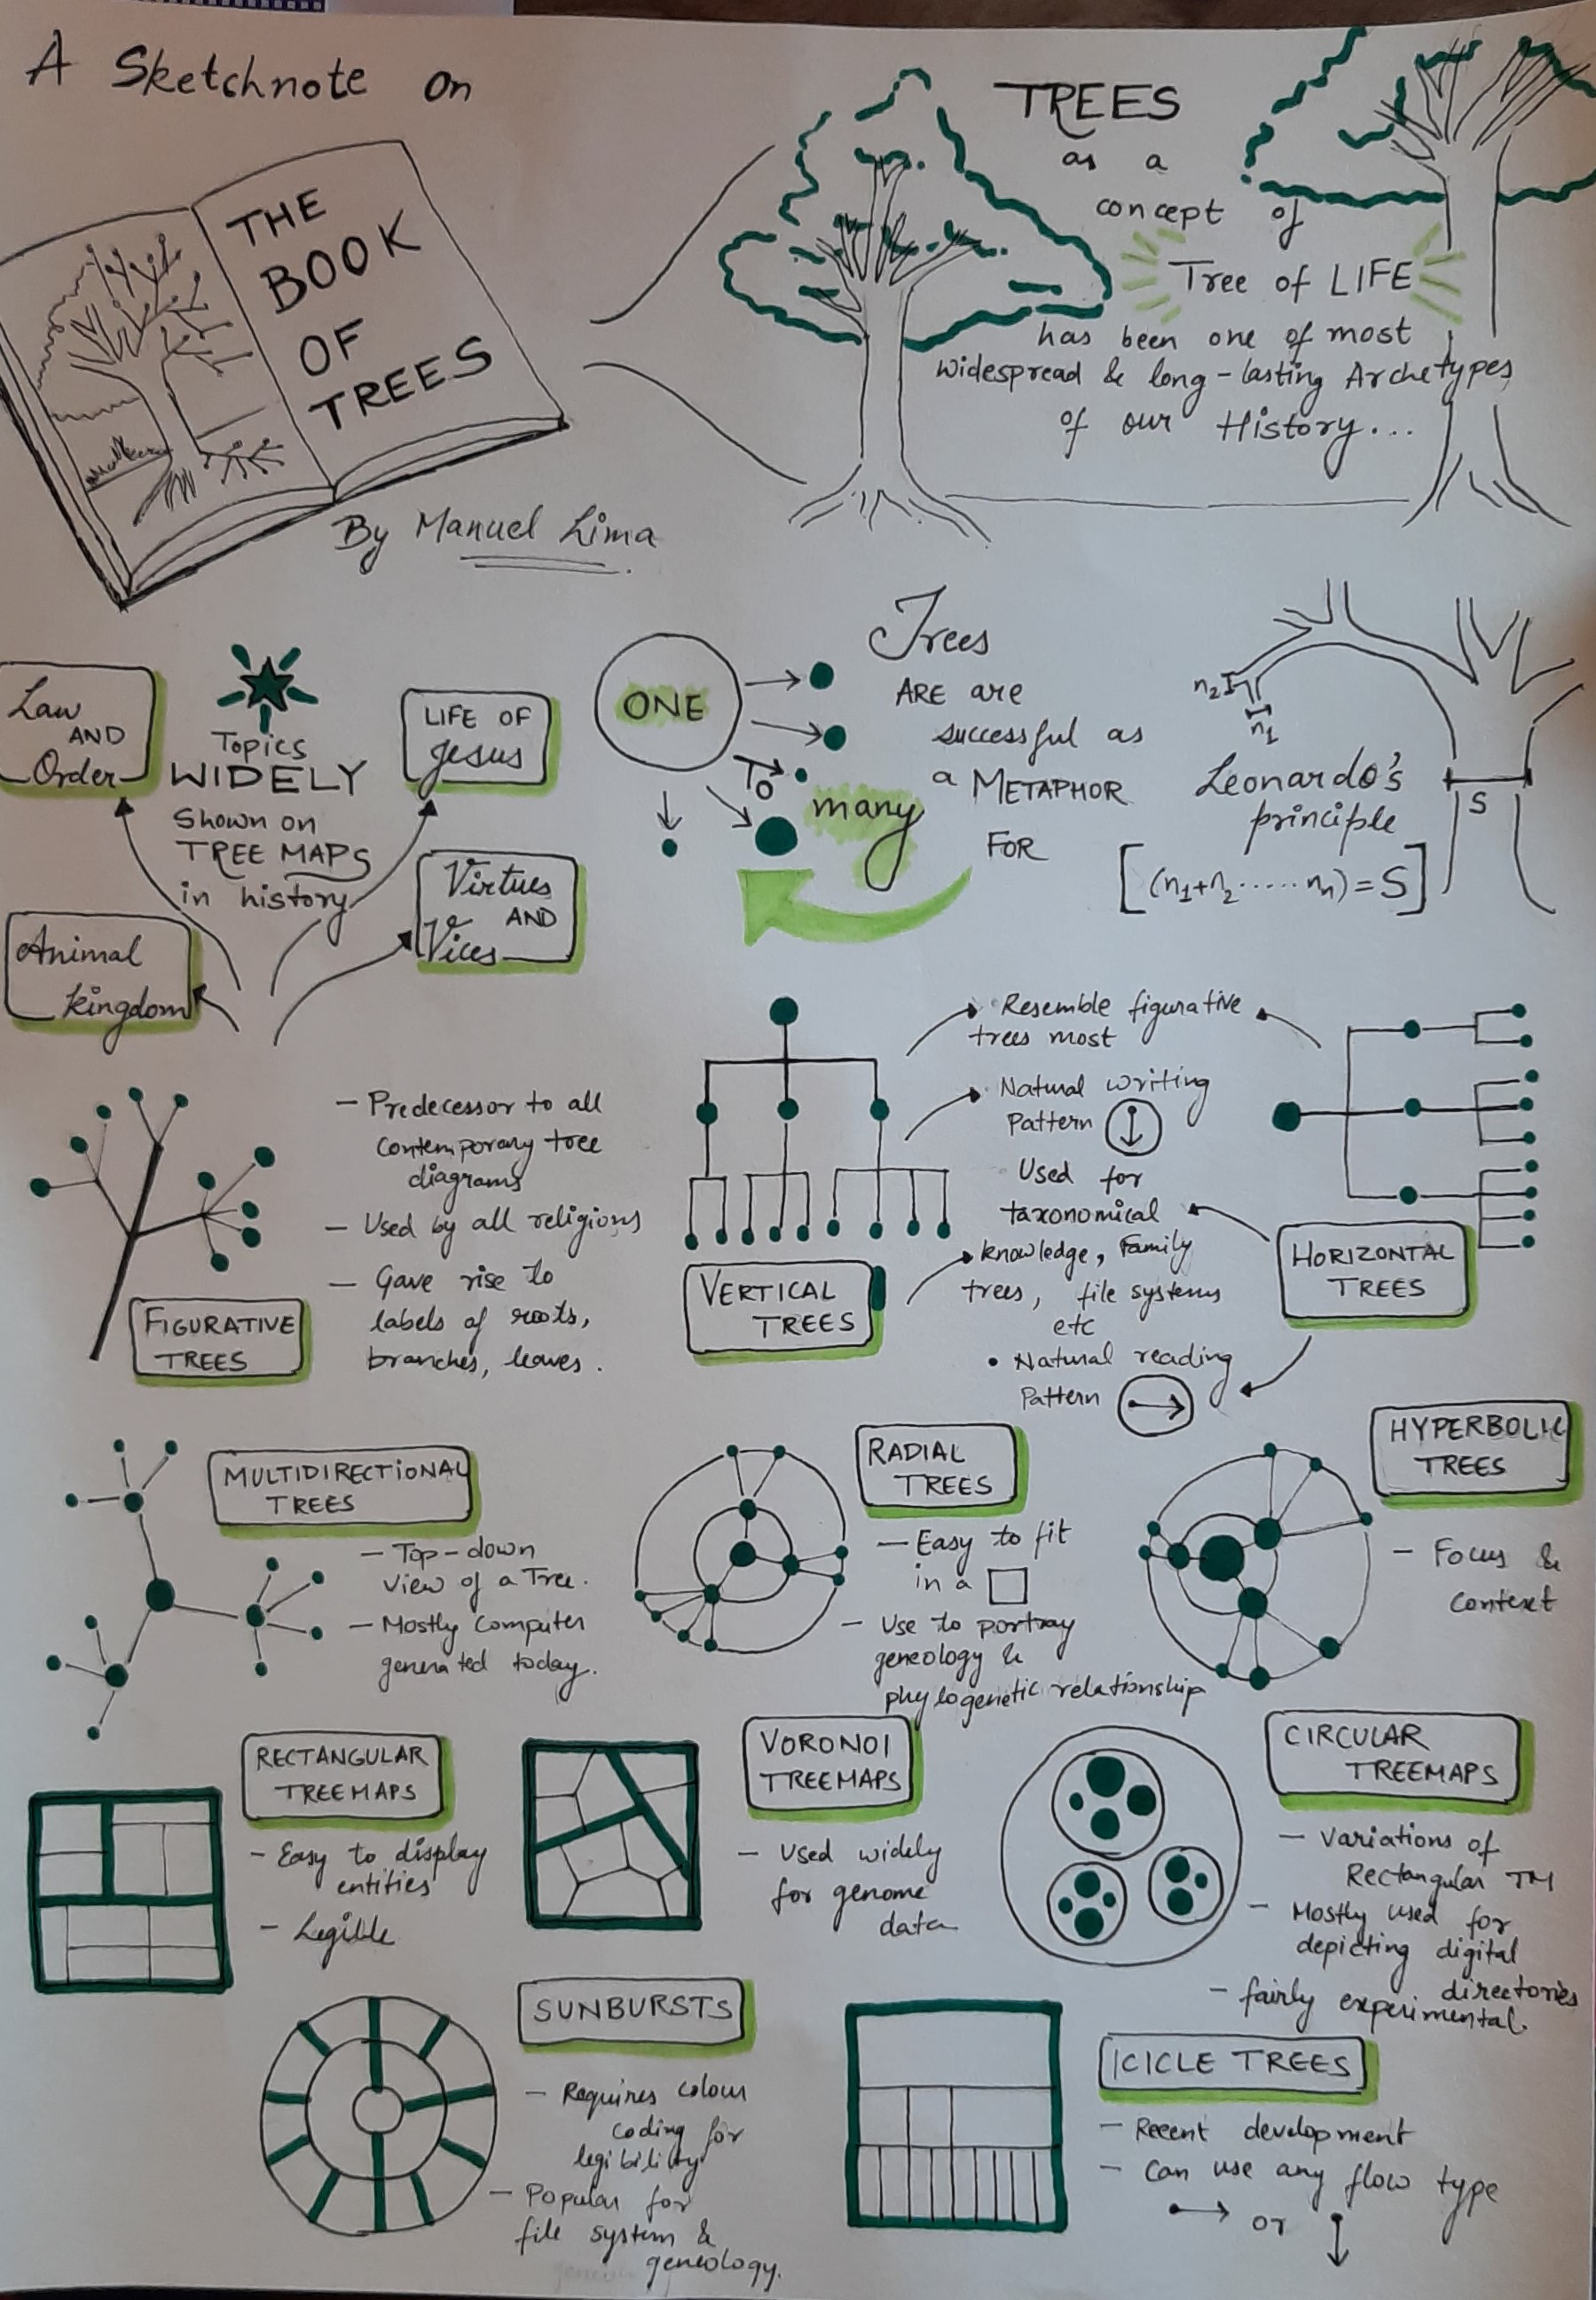 A Sketchnote on
THE
BOOK
OF
TREES
By Manuel Lima
TREES
as a
concept of
Tree of LIFE
has been one of most
widespread & long-lasting Archetypes
of our History...
Law
AND
Order
Topics
WIDELY
Shown on
TREE MAPS
in history
LIFE OF
Jesus
Virtues
AND
Vices
Animal
kingdom
ONE
To
many
Trees
ARE are
successful as
a METAPHOR
FOR
n2
n1
Leonardo's
principle
S
[(n1+n2......nn)=S]
- Predecessor to all
contemporary tree
diagrams
- Used by all religions
- Gave rise to
labels of roots,
branches, leaves.
FIGURATIVE
TREES
VERTICAL
TREES
• Resemble figurative
trees most
• Natural writing
Pattern
Used for
taxonomical
knowledge, Family
trees, file systems
etc
• Natural reading
Pattern
HORIZONTAL
TREES
MULTIDIRECTIONAL
TREES
- Top-down
view of a Tree.
- Mostly Computer
generated today.
RADIAL
TREES
- Easy to fit
in a
- Use to portray
geneology &
phylogenetic relationship
HYPERBOLIC
TREES
- Focus &
Context
RECTANGULAR
TREEMAPS
- Easy to display
entities
- Legible
VORONOI
TREEMAPS
- Used widely
for genome
data
CIRCULAR
TREEMAPS
- Variations of
Rectangular TM
- Mostly used for
depicting digital
directories
- fairly experimental.
SUNBURSTS
- Requires colour
coding for
legibility
- Popular for
file system &
geneology.
ICICLE TREES
- Recent development
- Can use any flow type
or